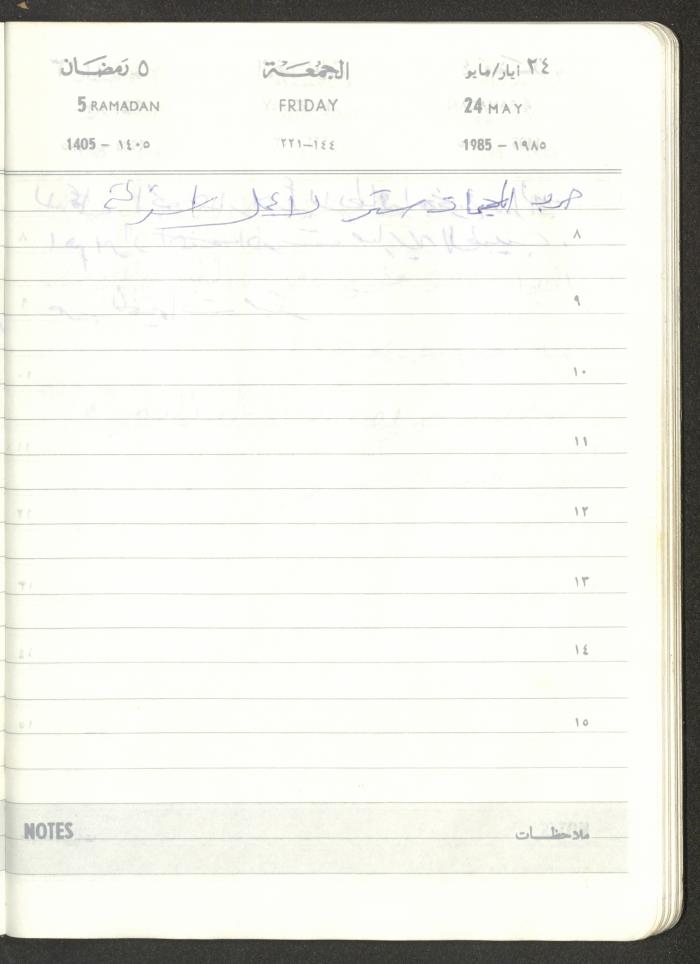 ٢٤ أيار/مايو الجمعة ٥ رمضان
24 MAY FRIDAY 5 RAMADAN
1985 – ١٩٨٥ ٢٢١–١٤٤ 1405 – ١٤٠٥
حرب المخيمات مستمرة لا عمل
٨
٩
١٠
١١
١٢
١٣
١٤
١٥
NOTES ملاحظات